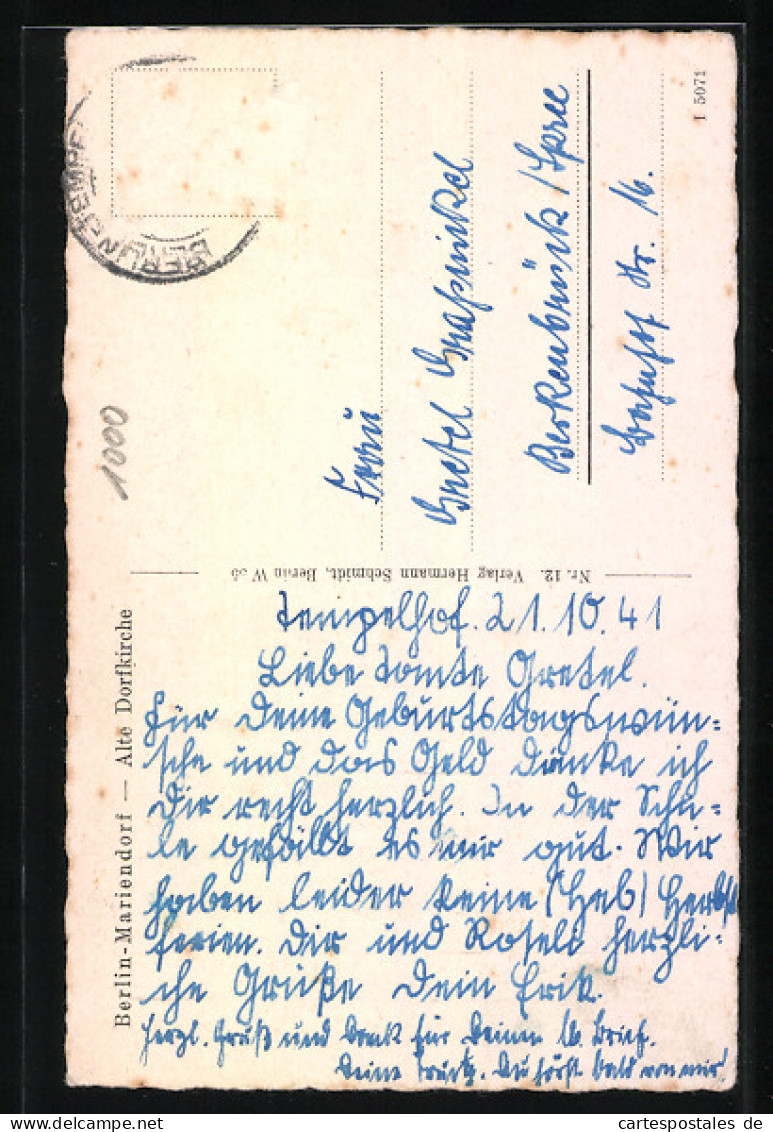 BERLIN-TEMPE
BERLIN
I 5071
1000
Frau
Gretel Graßnickel
Berkenbrück / Spree
Bahnhof Str. 16.
Nr. 12. Verlag Hermann Schmidt, Berlin W 35
Berlin-Mariendorf — Alte Dorfkirche
Tempelhof. 21.10.41
Liebe Tante Gretel.
Für Deine Geburtstagswün-
sche und das Geld danke ich
Dir recht herzlich. In der Schu-
le gefällt es mir gut. Wir
haben leider keine (Heb) Herbst
ferien. Dir und Rosels herzli-
che Grüße Dein Erik.
Herzl. Gruß und Dank für Deinen lb. Brief.
Deine Du hörst bald von mir!
cartespostales de